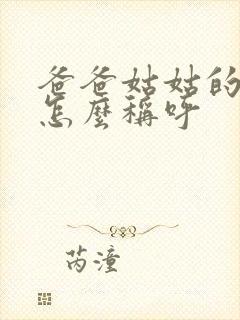 爸爸姑姑的
怎麼稱呼
芮潼